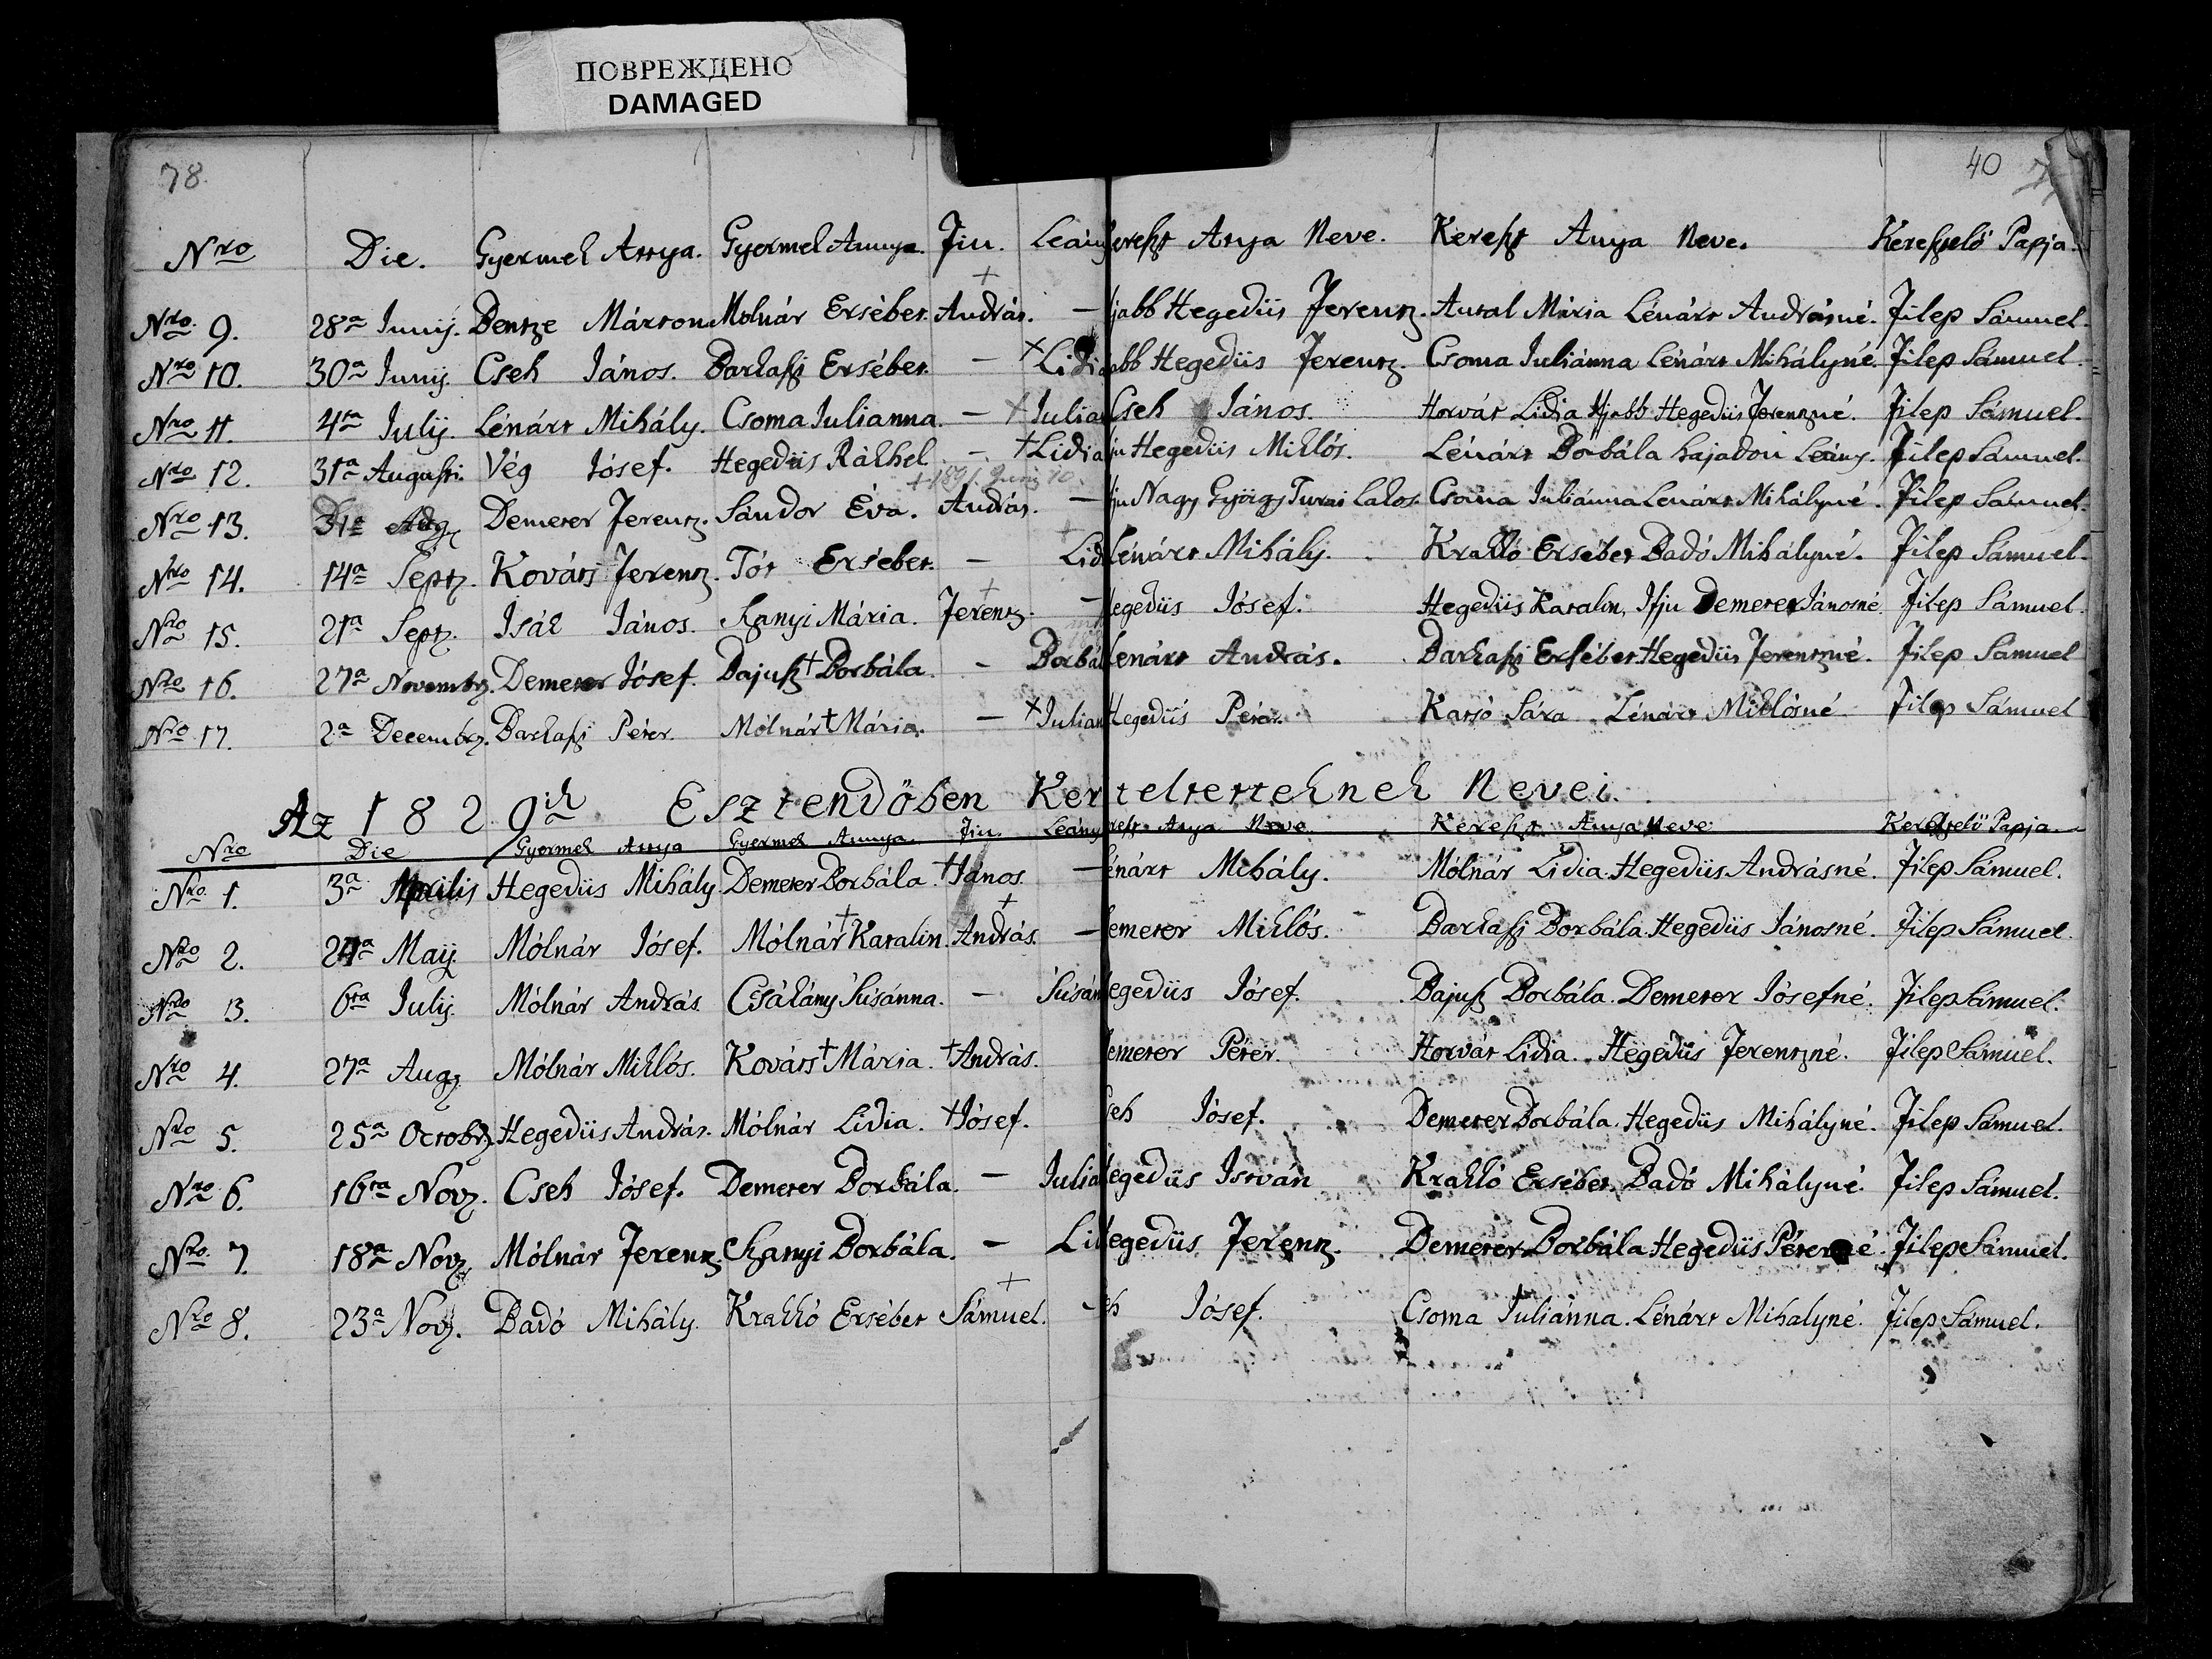 ПОВРЕЖДЕНО
DAMAGED
78.
40
Nro Die. Gyermek Attya. Gyermek Annya. Fiu. Leány Kereszt Atya Neve. Kereszt Anya Neve. Keresztelő Papja.
Nro 9. 28a Junij. Bentze Márton Molnár Ersébet. András. – jabb Hegedüs Ferentz. Antal Mária Lénárt Andrásné. Filep Sámuel.
Nro 10. 30a Junij. Cseh János. Barkaszi Ersébet. – +Lidia abb Hegedüs Ferentz. Csoma Juliánna Lénárt Mihályné. Filep Sámuel.
Nro 11. 4ta Julij. Lénárt Mihály. Csoma Julianna. – +Julian Cseh János. Horvát Lidia Ifjabb Hegedüs Ferentzné. Filep Sámuel.
Nro 12. 31a Augusti. Vég Jósef. Hegedüs Rákhel – +Lidia ju Hegedüs Miklós. Lénárt Borbála hajadon Leány. Filep Sámuel.
Nro 13. 31a Aug Demeter Ferentz. Sándor Éva. András. – fju Nagy György Turai Lakos. Csoma Juliánna Lenárt Mihályné. Filep Sámuel.
Nro 14. 14a Septz. Kováts Ferentz. Tót Ersébet. – Lid Lénárt Mihály. Krakkó Ersébet Badó Mihályné. Filep Sámuel.
Nro 15. 21a Septz. Isák János. Szanyi Mária. Ferentz. – Hegedüs Jósef. Hegedüs Katalin, Ifju Demeter Jánosné. Filep Sámuel.
Nro 16. 27a Novembz. Demeter Jósef. Bajusz + Borbála. – Borbál Lenárt András. Barkaszi Ersébet Hegedüs Ferentzné. Filep Sámuel
Nro 17. 2a Decembz. Barkaszi Péter. Mólnár + Mária. – +Julian Hegedüs Péter. Katsó Sára Lénárt Miklósné Filep Sámuel
Az 1829ik Esztendőben Kereszteltetteknek Nevei.
Nro Die Gyermek Attya Gyermek Annya. Fiu. Leány reszt Atya Neve. Kereszt Anya Neve. Keresztelő Papja.
Nro 1. 3a Aprilis Hegedüs Mihály Demeter Borbála. +János. – énárt Mihály. Mólnár Lidia Hegedüs Andrásné. Filep Sámuel.
Nro 2. 24a Maij. Mólnár Jósef. Mólnár + Katalin. András. – emeter Miklós. Barkaszi Borbála Hegedüs Jánosné. Filep Sámuel
Nro 3. 6ta Julij. Mólnár András Csákány Súsánna. – Súsán egedüs Jósef. Bajusz Borbála. Demeter Jósefné. Filep Sámuel.
Nro 4. 27a Augz. Mólnár Miklós. Kováts + Mária. +András. emeter Péter. Horvát Lidia. Hegedüs Ferentzné. Filep Sámuel.
Nro 5. 25a Octobz. Hegedüs András. Mólnár Lidia. +Jósef. seh Jósef. Demeter Borbála. Hegedüs Mihályné. Filep Sámuel.
Nro 6. 16ta Novz. Cseh Jósef. Demeter Borbála. – Julia egedüs István Krakkó Ersébet. Badó Mihályné. Filep Sámuel.
Nro 7. 18a Novz. Mólnár Ferentz. Szanyi Borbála. – Lid egedüs Ferentz. Demeter Borbála Hegedüs Péterné. Filep Sámuel.
Nro 8. 23a Novz. Badó Mihály. Krakkó Ersébet Sámuel. – eh Jósef. Csoma Juliánna. Lénárt Mihalyné. Filep Sámuel.